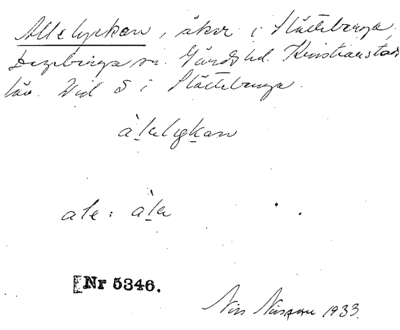 Allelyckan, åker i Slätteberga,
Degeberga sn. Gärds hd. Kristianstads
län. Vid 5 i Slätteberga.
àlelyckan
ale: àle
Nr 5346.
Nils Nilsson 1933.